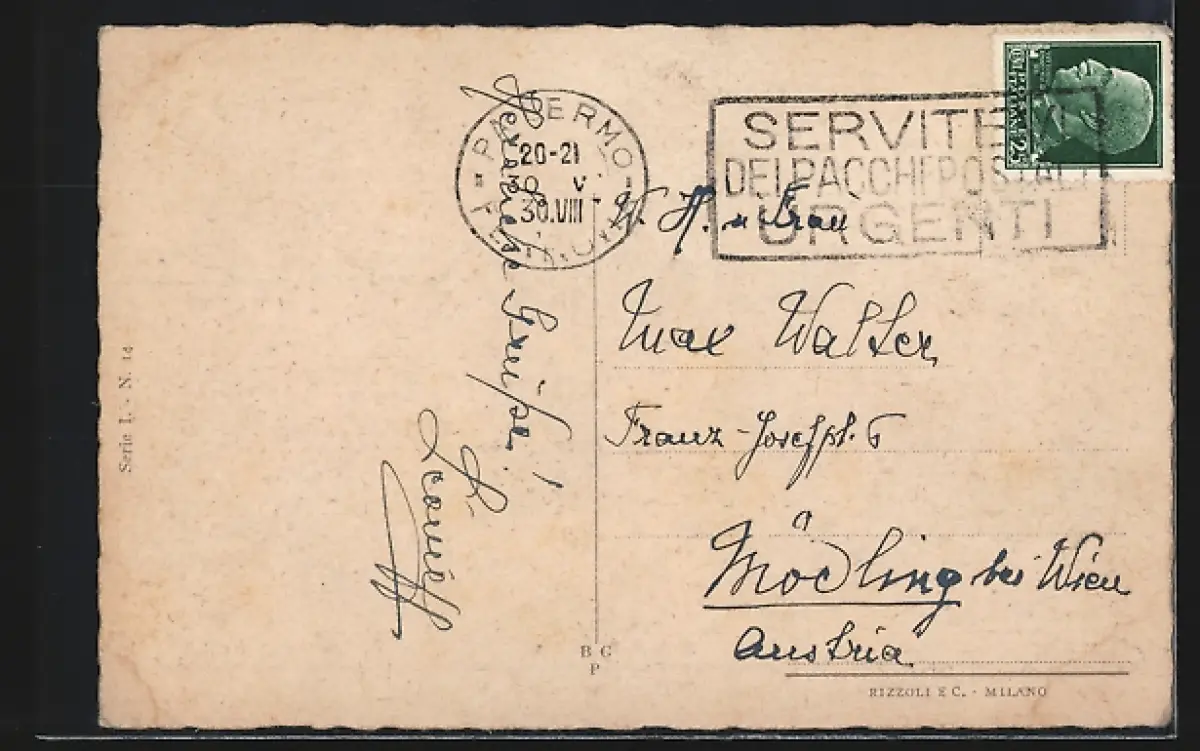 PALERMO
20-21
30 V
30.VIII
SERVITE
DEI PACCHI POSTALI
URGENTI
POSTE ITALIANE
Herzliche Grüße!
W. H. u Frau
Max Walter
Franz-Josefpl. 6
Mödling bei Wien
Austria
Serie I. - N. 14
B C
P
RIZZOLI E C. - MILANO